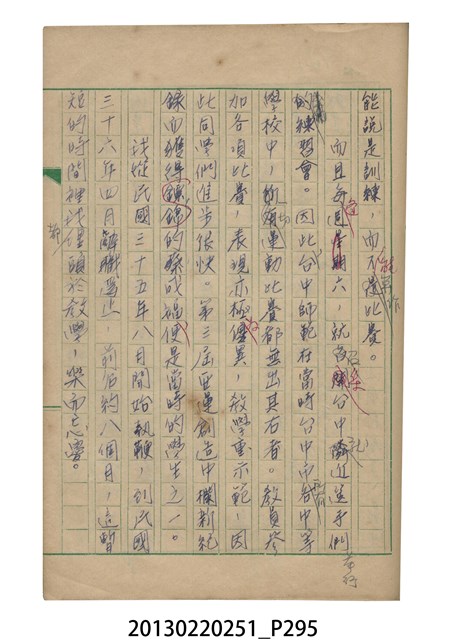 能說是訓練，而不能算作是比賽。
而且每逢星期六，就召集台中附近選手們舉行
的練習會。因此台中師範在當時台中市所有中等
學校中，切運動比賽都無出其右者。教員參
加各項比賽，表現亦極優異，教學重示範，因
此同學們進步很快。第三屆亞運創造中欄新紀
錄而獲得銀牌的蔡成福便是當時的學生之一。
我從民國三十五年八月開始執鞭，到民國
三十六年四月辭職為止，前後約八個月，這暫
短的時間裡我都埋頭於教學，樂而忘憂。
20130220251_P295